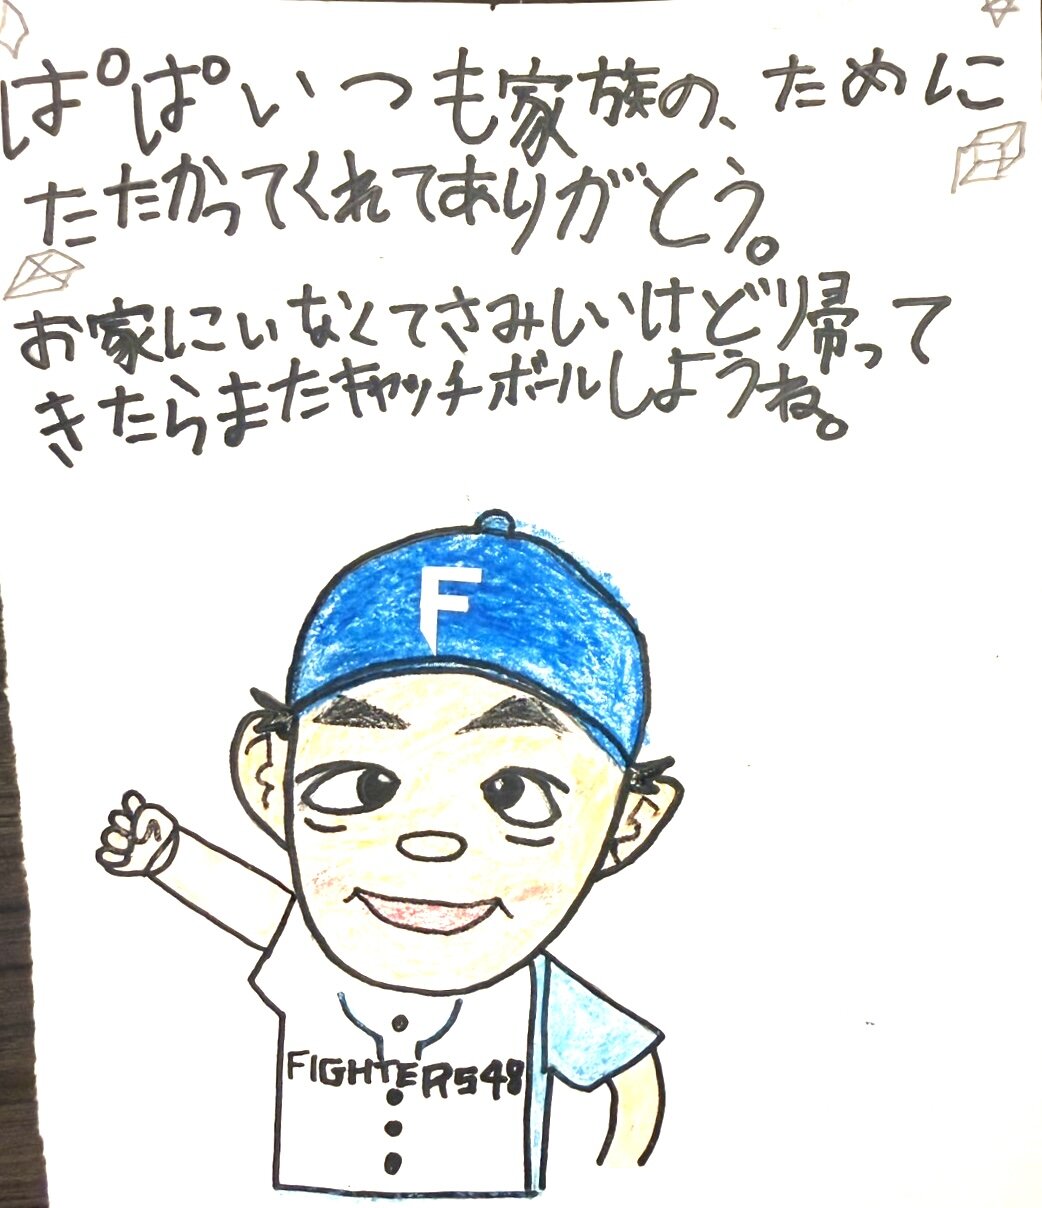 ぱぱいつも家族の、ために
たたかってくれてありがとう。
お家にいなくてさみしいけどり帰って
きたらまたキャッチボールしようね。
F
FIGHTERS48